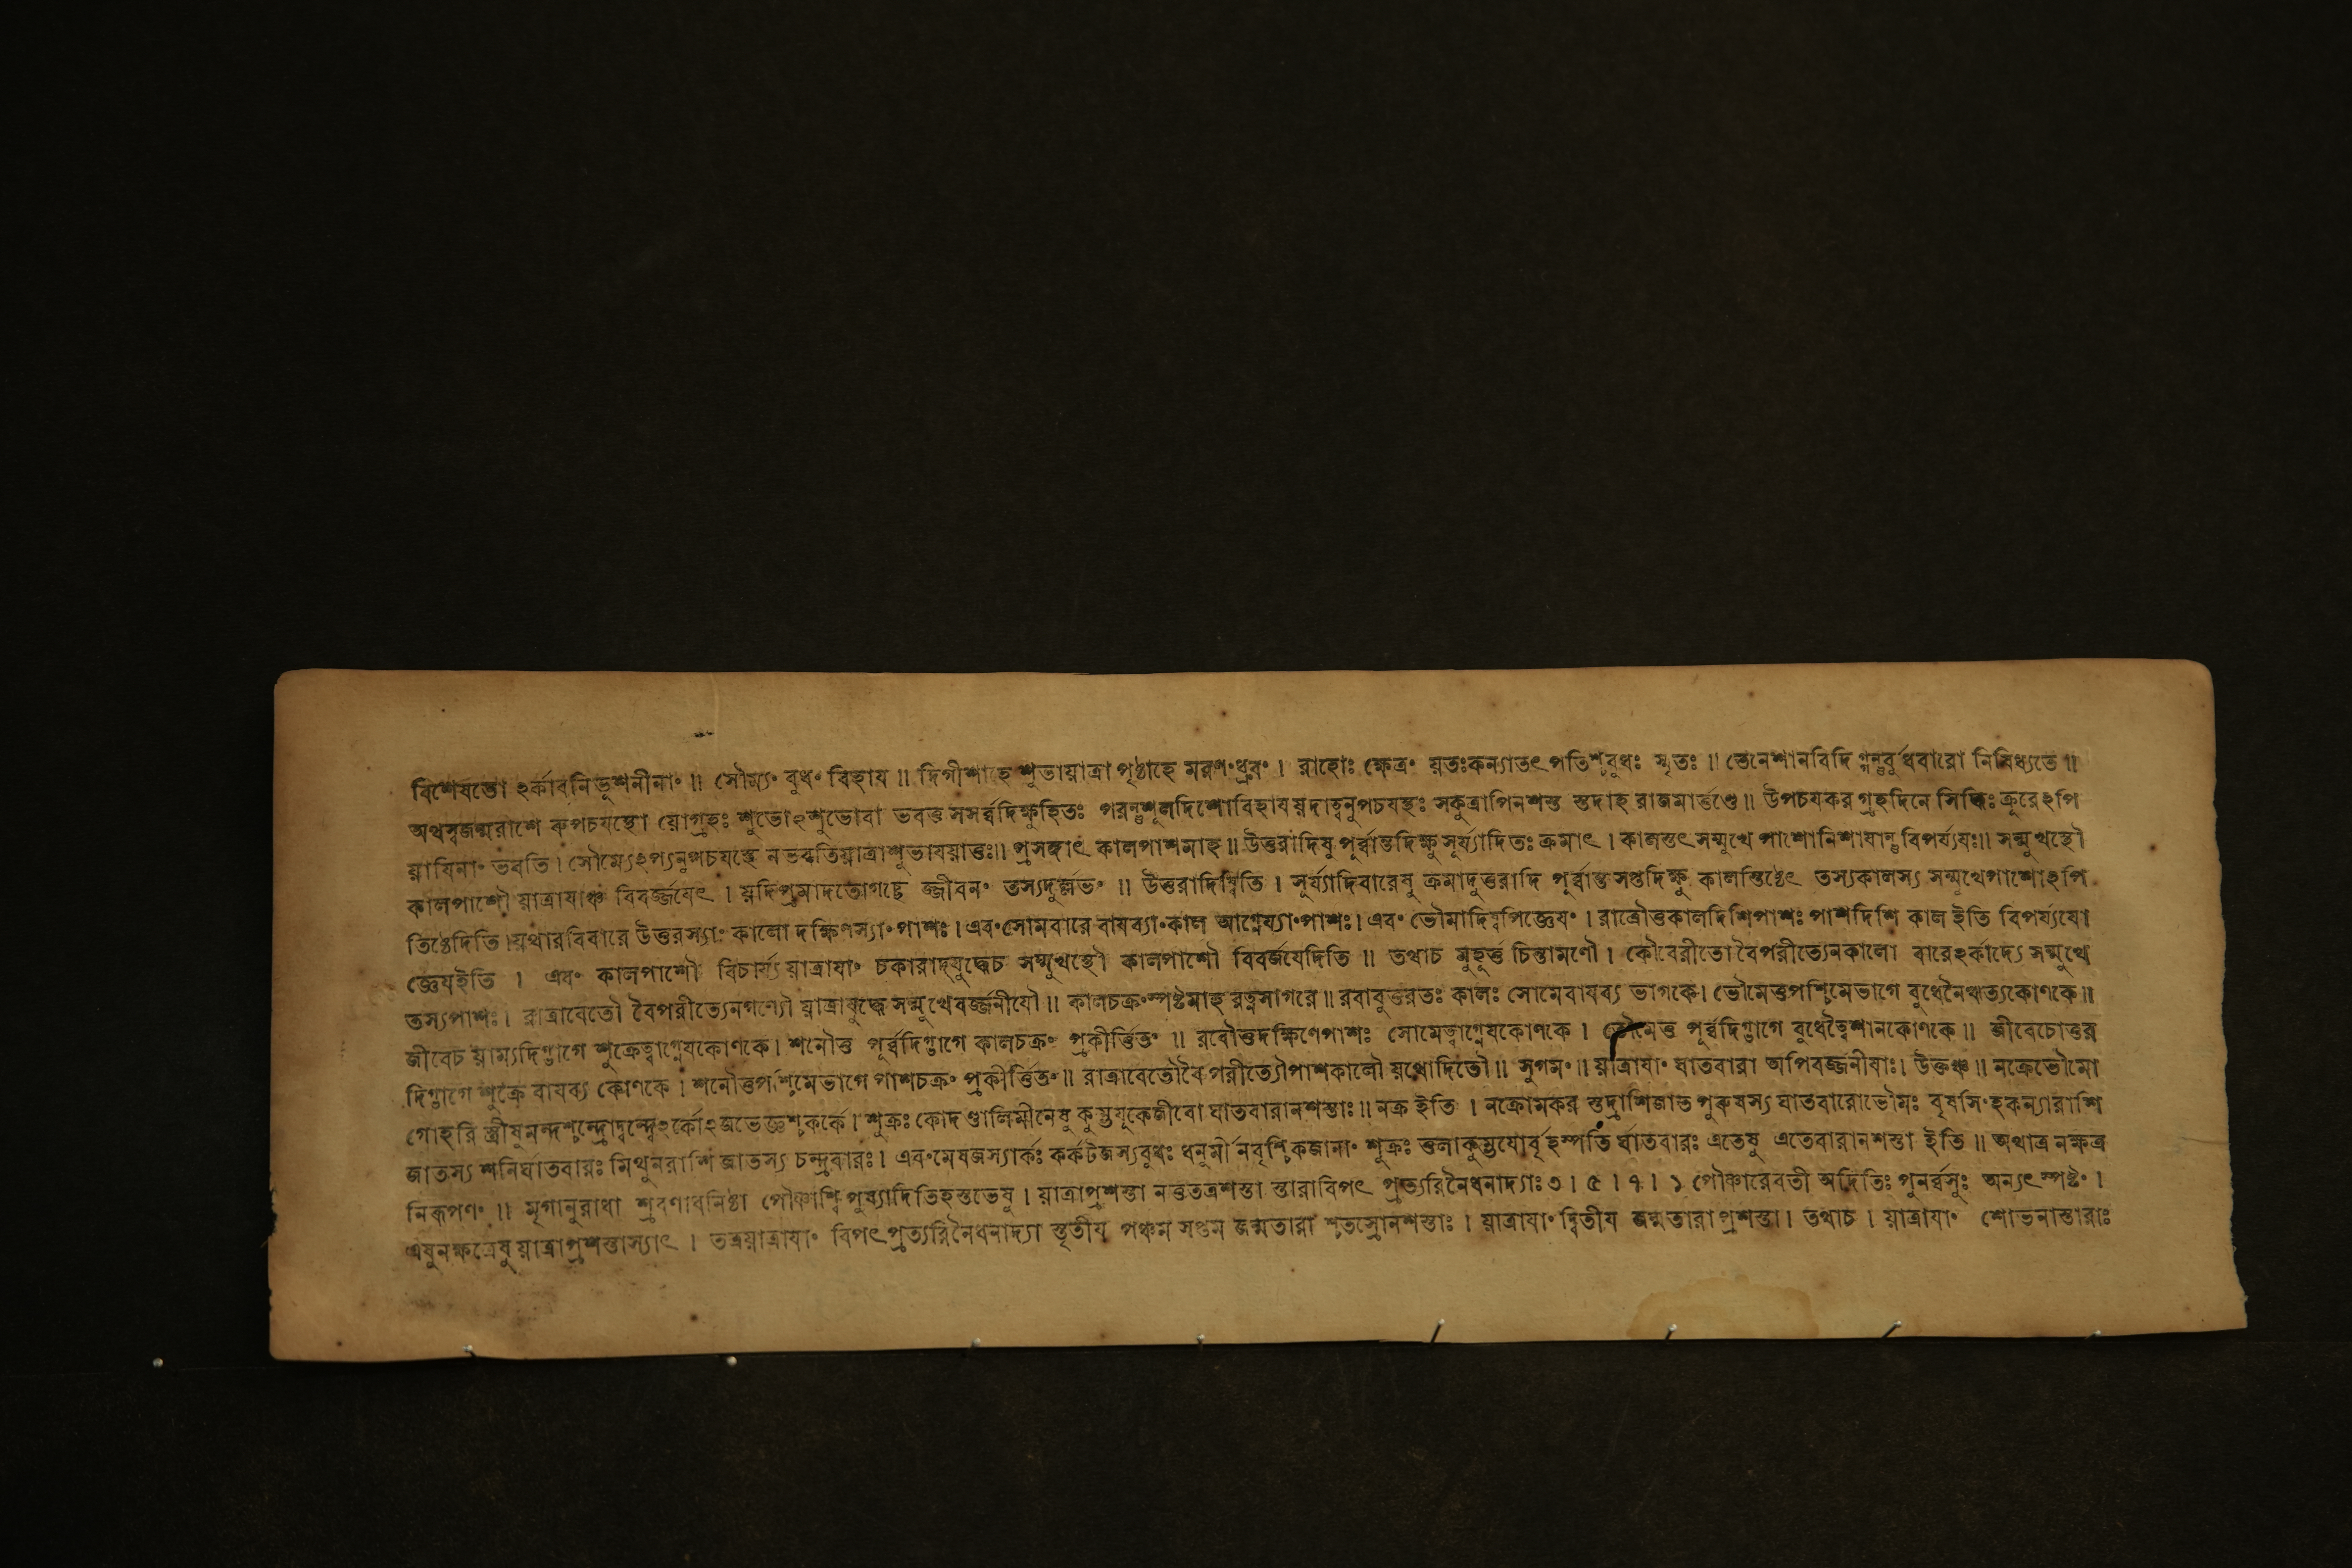 বিশেষতো ঽর্কাবনিভূশনীনাং ॥ সৌম্যং বুধং বিহায ॥ দিগীশাহে শুভাযাত্রা পৃষ্ঠাহে মরণংধ্রুবং । রাহোঃ ক্ষেত্রং যতঃকন্যাতৎ পতিশ্চবুধঃ স্মৃতঃ ॥ তেনেশানবিদি গ্গন্তুর্বুধবারো নিষিধ্যতে ॥
অথস্বজন্মরাশে রুপচযস্থো যোগ্রহঃ শুভোঽশুভোবা ভবত্ত সসর্ব্বদিক্ষুহিতঃ পরন্তুশূলদিশোবিহাযযদাত্বনুপচযস্থঃ সকুত্রাপিনশস্ত স্তদাহ রাজমার্ত্তণ্ডে ॥ উপচযকর গ্রহদিনে সিদ্ধিঃ ক্রূরেঽপি
যাযিনাং ভবতি । সৌম্যেঽপ্যনুপচযস্থে নভবতিযাত্রাশুভাবযাত্তুঃ॥ প্রসঙ্গাৎ কালপাশমাহ ॥ উত্তরাদিষু পূর্ব্বান্তদিক্ষু সূর্য্যাদিতঃ ক্রমাৎ । কালস্তৎ সম্মুখে পাশোনিশাযান্তুবিপর্য্যযঃ॥ সন্মুখস্থৌ
কালপাশৌ যাত্রাযাঞ্চ বিবর্জ্জযেৎ । যদিপ্রমাদতোগচ্ছে জ্জীবনং তস্যদুর্ল্লভং ॥ উত্তরাদিষ্বিতি । সূর্য্যাদিবারেষু ক্রমাদুত্তরাদি পূর্ব্বান্তসপ্তদিক্ষু কালস্তিষ্ঠেৎ তস্যকালস্য সন্মুখেপাশোঽপি
তিষ্ঠেদিতি ।যথারবিবারে উত্তরস্যাং কালো দক্ষিণস্যাংপাশঃ । এবংসোমবারে বাযব্যাংকাল আগ্নেয্যাংপাশঃ। এবং ভৌমাদিষ্বপিজ্ঞেযং । রাত্রৌত্তকালদিশিপাশঃ পাশদিশি কাল ইতি বিপর্য্যযো
জ্ঞেযইতি । এবং কালপাশৌ বিচার্য্য যাত্রাযাং চকারাদ্যুদ্ধেচ সম্মুখস্থৌ কালপাশৌ বিবর্জযেদিতি ॥ তথাচ মুহূর্ত্ত চিন্তামণৌ । কৌবেরীতো বৈপরীত্যেনকালো বারেঽর্কাদ্যে সন্মুখে
তস্যপাশঃ । রাত্রাবেতৌ বৈপরীত্যেনগণ্যৌ যাত্রাযুদ্ধে সন্মুখেবর্জ্জনীযৌ ॥ কালচক্রংস্পষ্টমাহ রত্নসাগরে ॥ রবাবুত্তরতঃ কালঃ সোমেবাযব্য ভাগকে। ভৌমেত্তপশ্চিমেভাগে বুধেনৈঋত্যকোণকে॥
জীবেচ যাম্যদিগ্ভাগে শুক্রেত্বাগ্নেযকোণকে। শনৌত্ত পূর্ব্বদিগ্ভাগে কালচক্রং প্রকীর্ত্তিতং ॥ রবৌত্তদক্ষিণেপাশঃ সোমেত্বাগ্নেযকোণকে । ভৌমেত্ত পূর্ব্বদিগ্ভাগে বুধেত্বৈশানকোণকে ॥ জীবেচোত্তর
দিগ্ভাগে শুক্রে বাযব্য কোণকে । শনৌত্তপশ্চিমেভাগে পাশচক্রং প্রকীর্ত্তিতং ॥ রাত্রাবেতৌবৈপরীত্যৌপাশকালৌ যথোদিতৌ ॥ সুগমং ॥ যাত্রাযাং ঘাতবারা অপিবর্জ্জনীযাঃ। উক্তঞ্চ ॥ নক্রেভৌমো
গোহরি স্ত্রীষুমন্দশ্চন্দ্রোদ্বন্দ্বেঽর্কোঽজভেজ্ঞশ্চকর্কে। শুক্রঃ কোদণ্ডালিমীনেষু কুম্ভযূকেজীবো ঘাতবারানশস্তাঃ॥ নক্র ইতি । নক্রোমকর স্তদ্রাশিজাত পুরুষস্য ঘাতবারোভৌমঃ বৃষসিংহকন্যারাশি
জাতস্য শনির্ঘাতবারঃ মিথুনরাশি জাতস্য চন্দ্রবারঃ। এবংমেষজস্যার্কঃ কর্কটজস্যবুধঃ ধনুর্মীনবৃশ্চিকজানাং শুক্রঃ ত্তলাকুম্ভযোর্বৃহস্পতি র্ঘাতবারঃ এতেষু এতেবারানশস্তা ইতি ॥ অথাত্র নক্ষত্র
নিরূপণং ॥ মৃগানুরাধা শ্রবণাধনিষ্ঠা পৌষ্ণাশ্বি পুষ্যাদিতিহস্তভেষু । যাত্রাপ্রশস্তা নত্ততত্রশস্তা স্তারাবিপৎ প্রত্যরিনৈধনাদ্যাঃ ৩ । ৫ । ৭ । ১ পৌষ্ণারেবতী অদিতিঃ পুনর্ব্বসুঃ অন্যৎস্পষ্টং ।
এষুনক্ষত্রেষু যাত্রাপ্রশস্তাস্যাৎ । তত্রযাত্রাযাং বিপৎপ্রত্যরিনৈধনাদ্যা স্তৃতীয পঞ্চম সপ্তম জন্মতারা শ্চতস্রোনশস্তাঃ । যাত্রাযাং দ্বিতীয জন্মতারা প্রশস্তা। তথাচ । যাত্রাযাং শোভনাস্তারাঃ